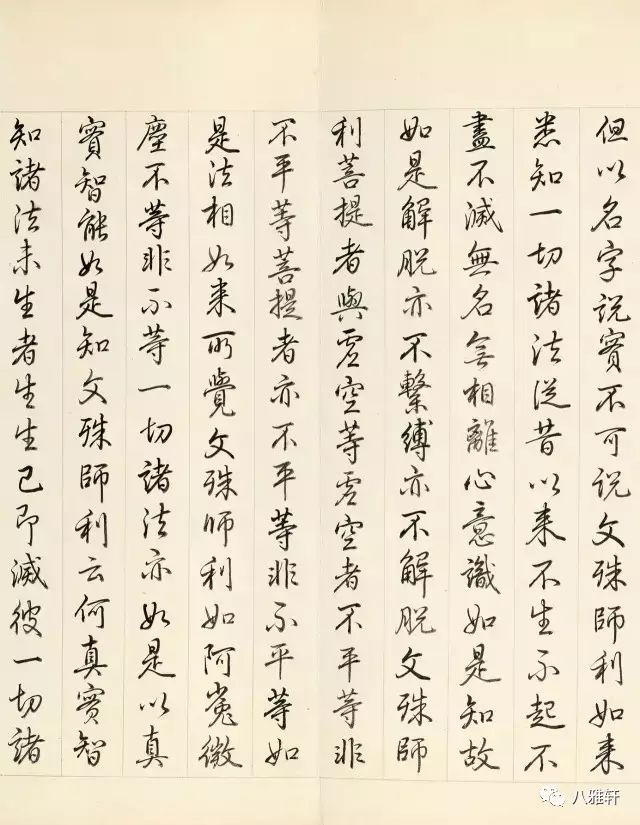 但以名字説實不可説文殊師利如来
悉知一切諸法従昔以来不生不起不
盡不滅無名無相離心意識如是知故
如是解脱亦不繫縛亦不解脱文殊師
利菩提者與虚空等虚空者不平等非
不平等菩提者亦不平等非不平等如
是法相如来所覺文殊师利如阿㝹微
塵不等非不等一切諸法亦如是以真
實智能如是知文殊師利云何真實智
知諸法未生者生生已即滅彼一切諸
八雅轩